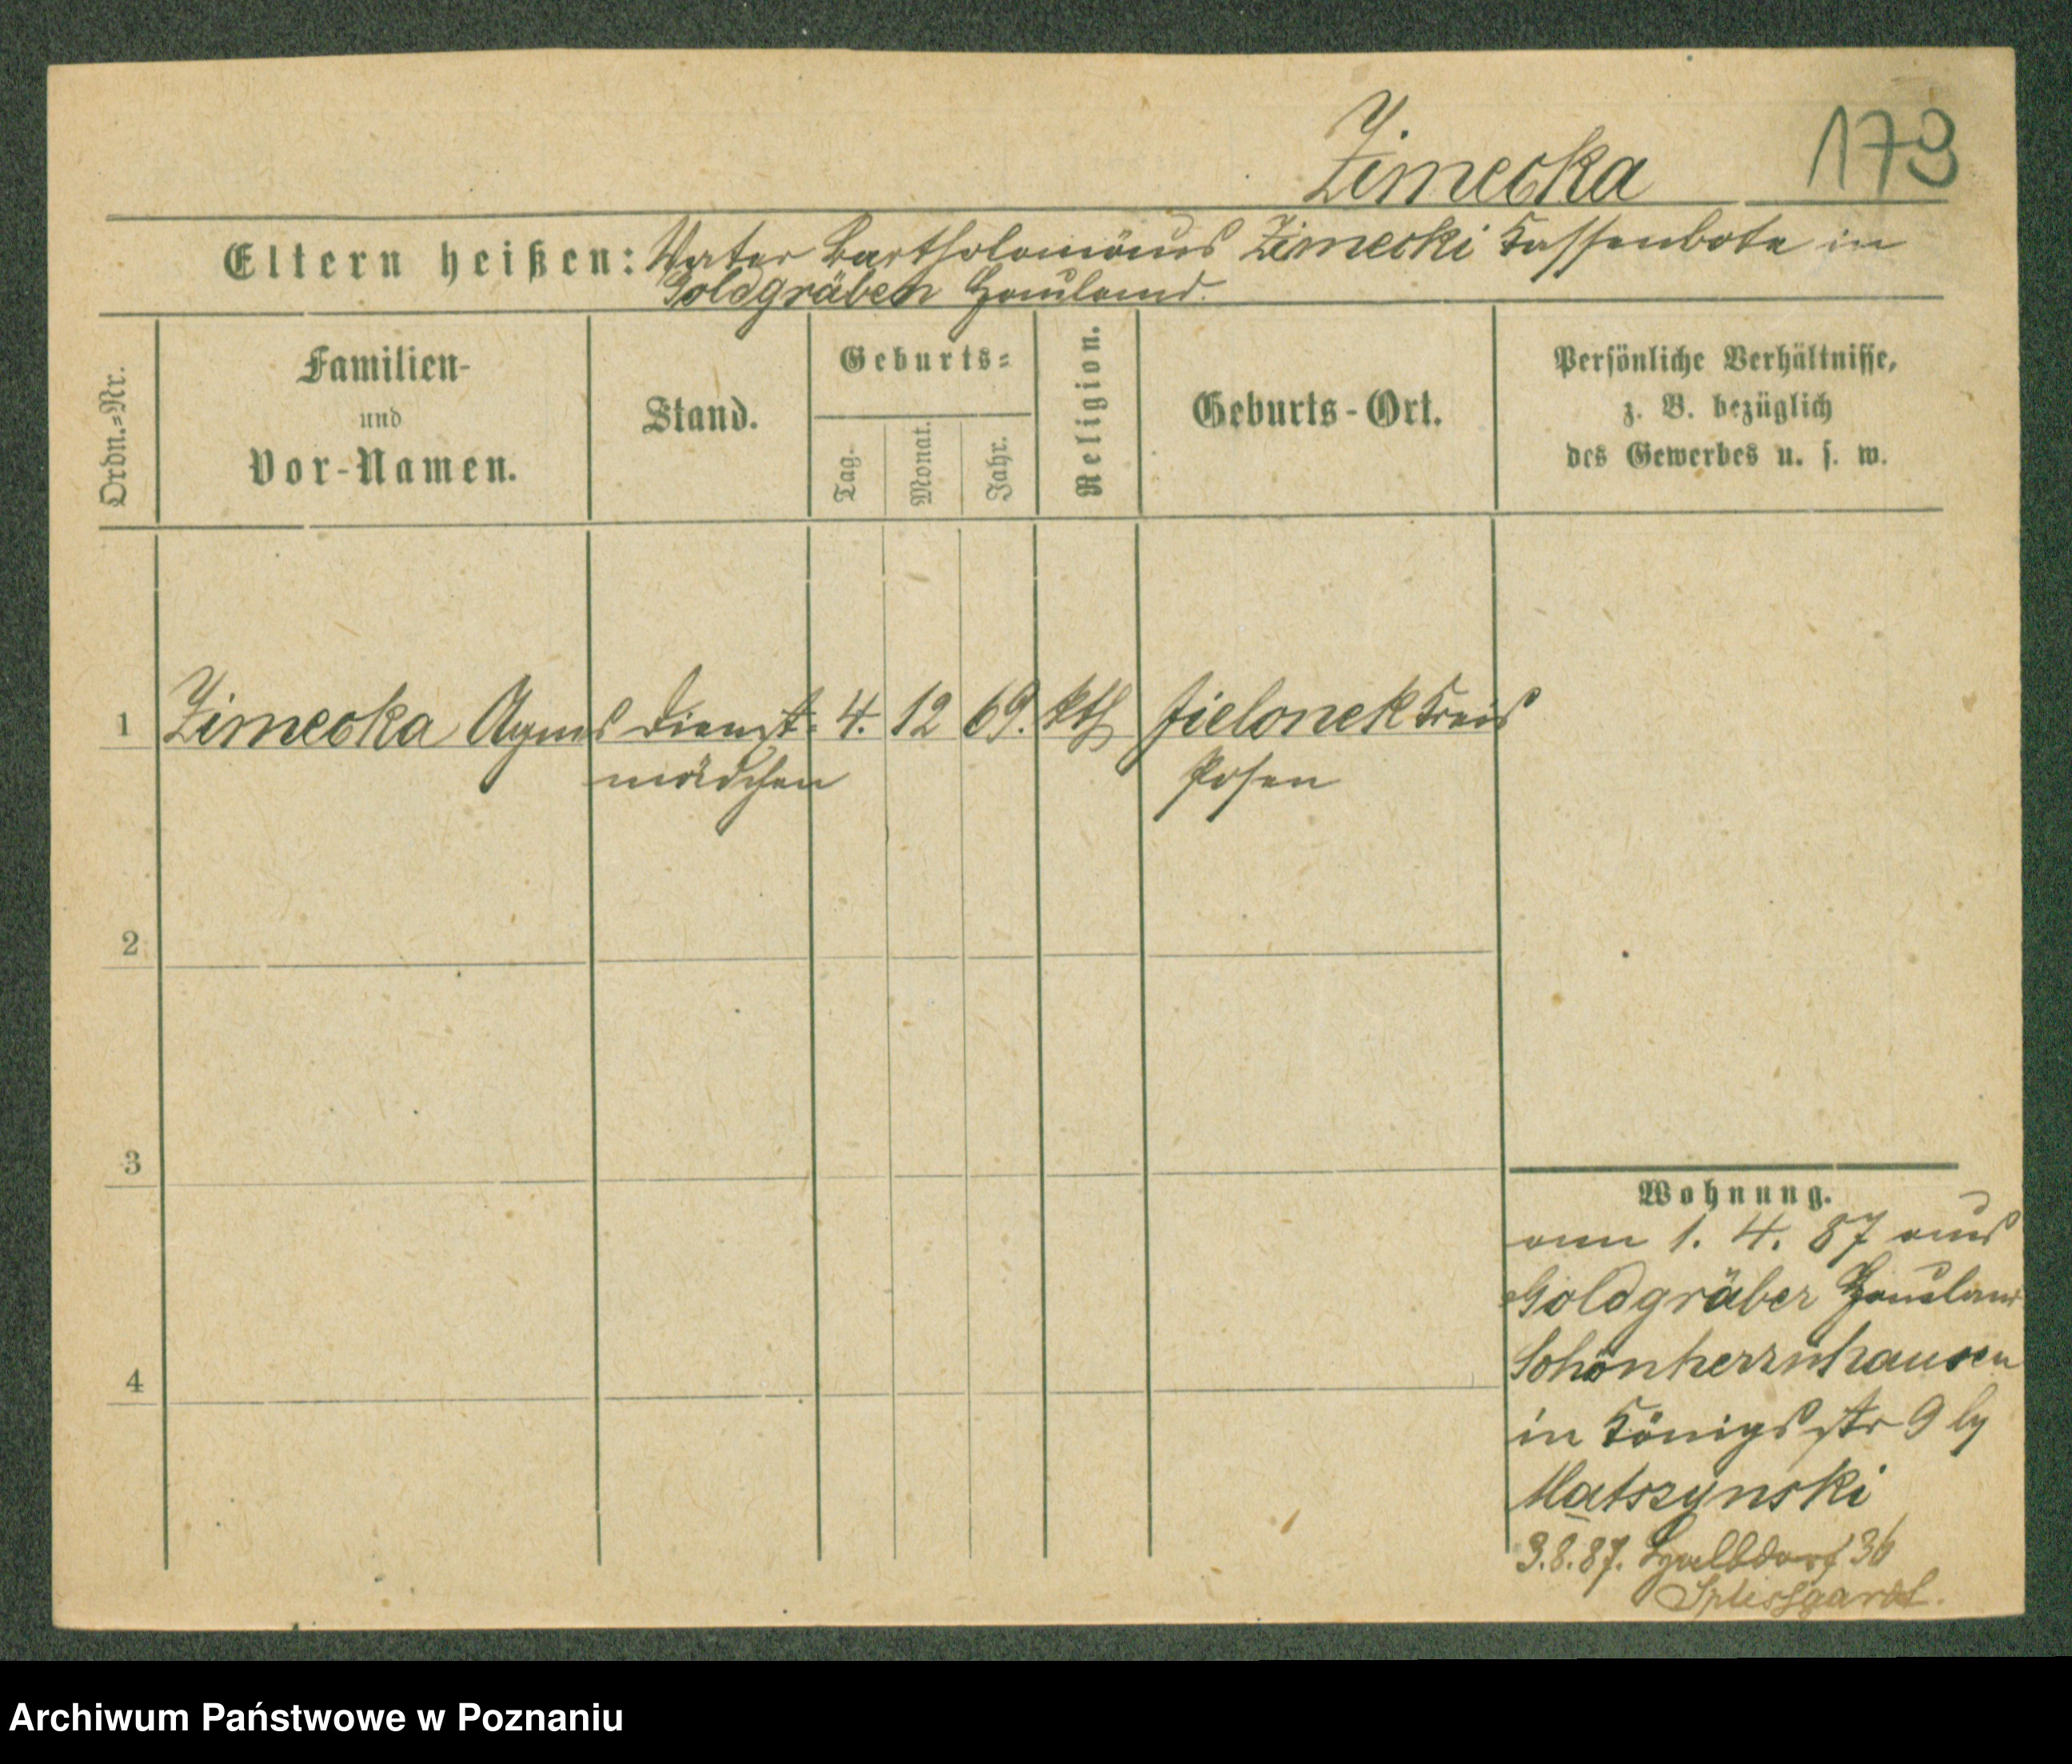 Zimecka 173
Eltern heißen: Vater Bartholomäus Zimecki Kassenbote in
Goldgräben Hauland.
Ordn.=Nr.
Familien-
und
Vor-Namen.
Stand.
Geburts=
Tag.
Monat.
Jahr.
Religion.
Geburts-Ort.
Persönliche Verhältnisse,
z. B. bezüglich
des Gewerbes u. s. w.
1 Zimecka Agnes Dienst= 4. 12 69. kth Zielonek Kreis
mädchen Posen
2
3
4
Wohnung.
am 1. 4. 87 aus
Goldgräber Hauland
Schönherrnhausen
in Königsstr 9 by
Matszynski
3.8.87. 36
Archiwum Państwowe w Poznaniu